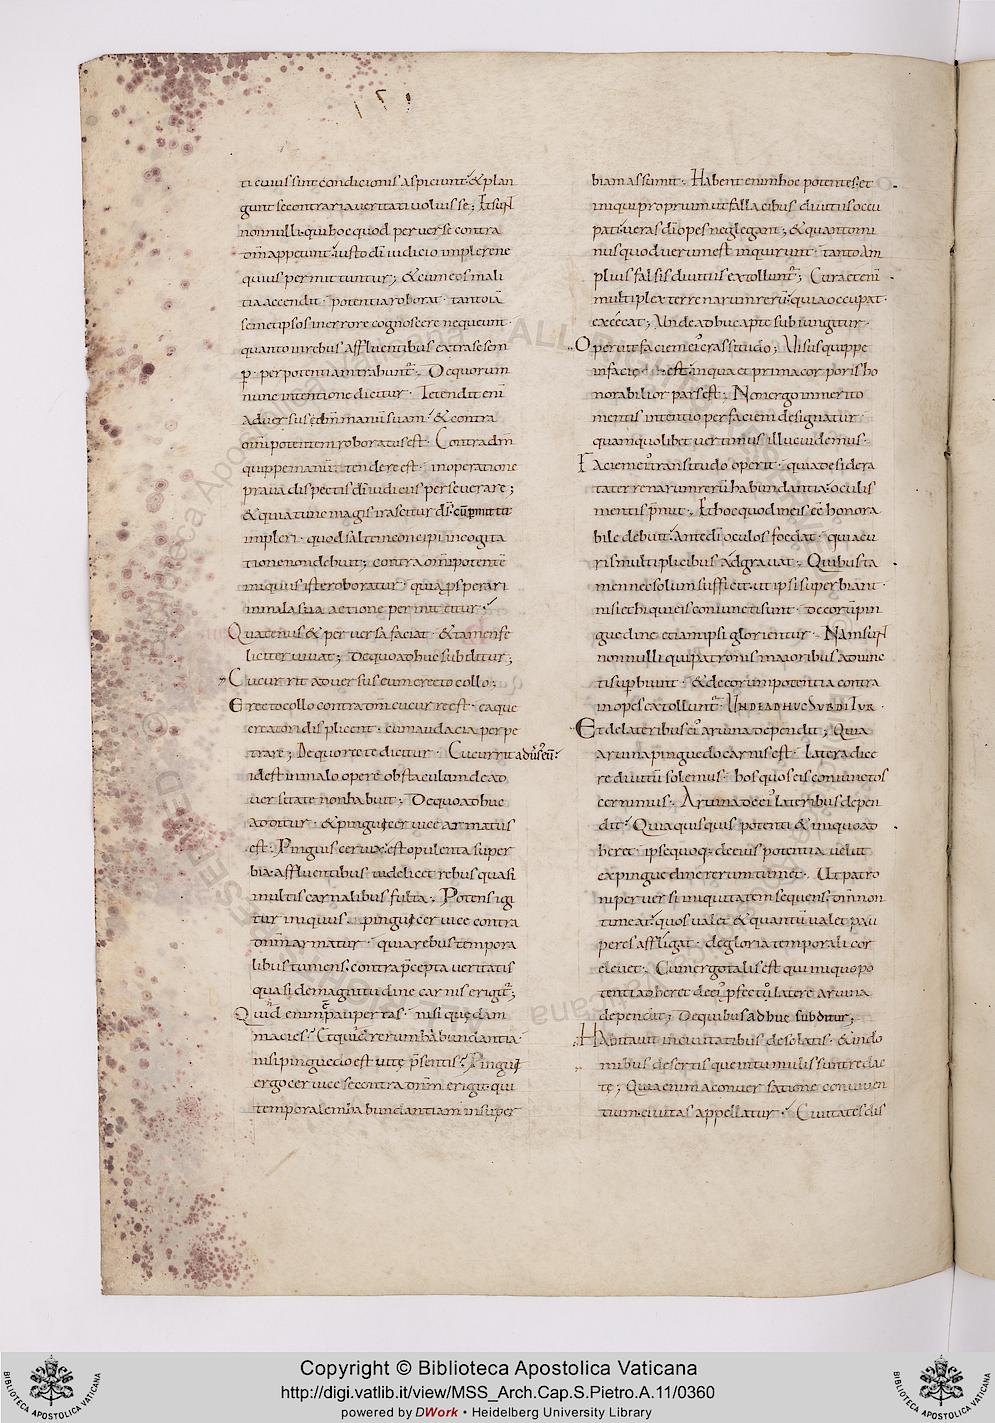 ti cuius sint condicionis aspiciunt· & plan
gunt se contraria ueritati uoluisse; Et sunt
nonnulli· qui hoc quod peruerse contra
om̄ appetunt· iusto dī iudicio implere ne
quius permittuntur; & cum eos mali
tia accendit· potentia roborat· tanto iā
semetipsos in errore cognoscere nequeunt·
quanto in rebus affluentibus extra se sem
p̄· per potentiam trahuntr̄· De quorum
nunc intentione dicitur· Tetendit enī
aduersus dn̄m manū suam· & contra
om̄ipotentem roboratus est· Contra dn̄m
quippe manū tendere est· in operatione
praua dispectis dī iudiciis perseuerare;
& quia tunc magis irascitur ds̄· cū p̄mittit
impleri· quod saltem concipi in cogita
tione non debuit; contra om̄ipotentē
iniquus iste roboratur· quia p̄sperari
in mala sua actione permittitur·
Quatenus & peruersa faciat· & tamen fe
liciter uiuat; De quo adhuc subditur;
Cucurrit aduersus eum erecto collo;
Erecto collo contra dm̄ currere est· ea que
creatori displicent· cum audacia perpe
trare; De quo recte dicitur· Cucurrit aduersus eū·
id est in malo opere obstaculum de ad
uersitate non habuit; De quo adhuc
additur· & pingui ceruice armatus
est· Pinguis ceruix· est opulenta super
bia· affluentibus uidelicet rebus quasi
multis carnalibus fulta· Potens igi
tur iniquus· pingui ceruice contra
dm̄ armatur· quia rebus tempora
libus tumens· contra p̄cepta ueritatis
quasi de magnitudine carnis erigitr̄;
Quid enim paupertas· nisi quędam
macies· Et quid rerum habundantia·
nisi pinguedo est uitę p̄sentis· Pingui
ergo ceruice se contra dm̄ erigit· qui
temporalem habundantiam in super
biam assumit· Habent enim hoc potentes· et
iniqui proprium ut fallacibus diuitiis occu
pati· ueras dī opes neglegant; & quanto mi
nus quod uerum est inquirunt· tanto am
plius falsis diuitiis extolluntr̄; Cura etenī
multiplex terrenarum rerū· quia occupat·
excecat; Unde adhuc apte subiungitur·
Operuit faciem eius crassitudo; Uisus quippe
in facie· est· in qua et prima corporis ho
norabilior pars est; Non ergo inmerito
mentis intentio per faciem designatur·
quam quolibet uertimus illuc uidemus·
Faciem eius crassitudo operit· quia desidera
ta terrenarum rerū habundantia· oculis
mentis p̄mit· Et hoc quod in eis eē honora
bile debuit· ante dī oculos foedat· quia cu
ris multiplicibus adgrauat· Quibus ta
men nec solum sufficit· ut ipsi superbiant·
nisi et hi qui eis coniuncti sunt· de eorū pin
guedine etiam ipsi glorientur· Nam sunt
nonnulli qui patronis maioribus adiunc
ti sup̄biunt· & de eorum potentia contra
inopes extolluntr̄· UNDE ADHUC SUBDITUR·
Et de lateribus eius aruina dependit; Quia
aruina pinguedo carnis est· latera dice
re diuitū solemus· hos quos eis coniunctos
cernimus· Aruina de eius lateribus depen
dit· Quia quisquis potenti & iniquo ad
heret· ipse quoq; de eius potentia uelut
ex pinguedine rerum tumet· Ut patro
ni peruersi iniquitatem sequens· dm̄ non
timeat· quos ualet & quantū ualet pau
peres affligat· de gloria temporali cor
eleuet· Cum ergo talis est qui iniquo po
tenti adheret de eius p̄fecto latere aruina
dependit; De quibus adhuc subditur;
Habitauit in ciuitatibus desolatis· & in do
mibus desertis que in tumulis sunt redac
tę; Quia enim a conuersatione conuiuen
tium· ciuitas appellatur· Ciuitates dis
Copyright © Biblioteca Apostolica Vaticana
http://digi.vatlib.it/view/MSS_Arch.Cap.S.Pietro.A.11/0360
powered by DWork • Heidelberg University Library